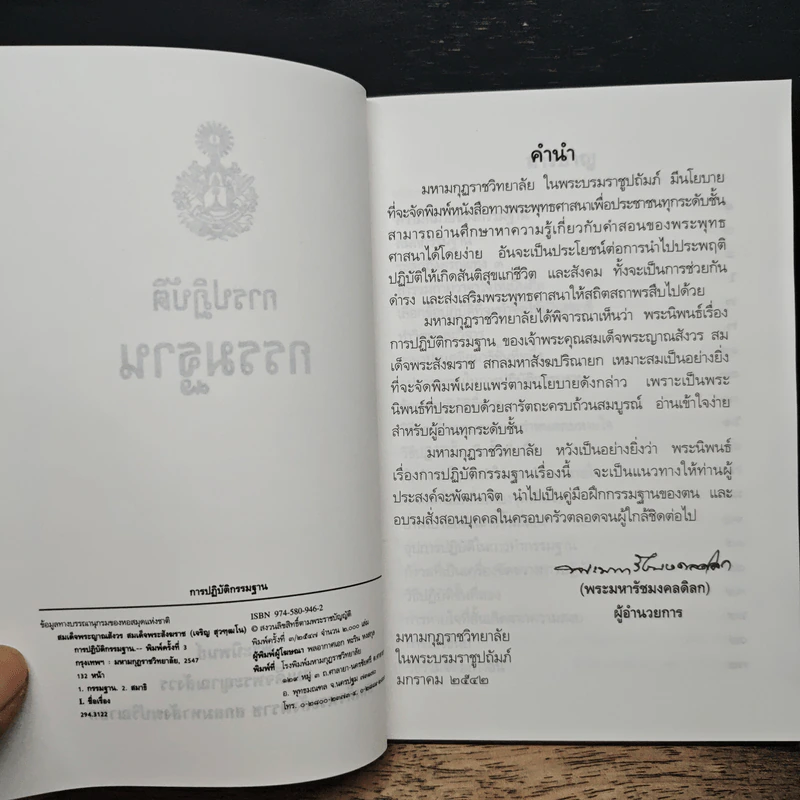 การปฏิบัติ
กรรมฐาน
การปฏิบัติกรรมฐาน
ข้อมูลทางบรรณานุกรมของหอสมุดแห่งชาติ
สมเด็จพระญาณสังวร สมเด็จพระสังฆราช (เจริญ สุวฑฺฒโน)
การปฏิบัติกรรมฐาน.-- พิมพ์ครั้งที่ 3
กรุงเทพฯ : มหามกุฏราชวิทยาลัย, 2547
132 หน้า
1. กรรมฐาน. 2. สมาธิ
I. ชื่อเรื่อง
294.3122
ISBN 974-580-946-2
© สงวนลิขสิทธิ์ตามพระราชบัญญัติ
พิมพ์ครั้งที่ ๓/๒๕๔๗ จำนวน ๒,๐๐๐ เล่ม
ผู้พิมพ์ผู้โฆษณา พลอากาศเอก หะริน หงสกุล
พิมพ์ที่ โรงพิมพ์มหามกุฏราชวิทยาลัย
หมู่ ๓ ถ.ศาลายา-นครชัยศรี
อ. พุทธมณฑล จ.นครปฐม
คำนำ
มหามกุฏราชวิทยาลัย ในพระบรมราชูปถัมภ์ มีนโยบาย
ที่จะจัดพิมพ์หนังสือทางพระพุทธศาสนาเพื่อประชาชนทุกระดับชั้น
สามารถอ่านศึกษาหาความรู้เกี่ยวกับคำสอนของพระพุทธ
ศาสนาได้โดยง่าย อันจะเป็นประโยชน์ต่อการนำไปประพฤติ
ปฏิบัติให้เกิดสันติสุขแก่ชีวิต และสังคม ทั้งจะเป็นการช่วยกัน
ดำรง และส่งเสริมพระพุทธศาสนาให้สถิตสถาพรสืบไปด้วย
มหามกุฏราชวิทยาลัยได้พิจารณาเห็นว่า พระนิพนธ์เรื่อง
การปฏิบัติกรรมฐาน ของเจ้าพระคุณสมเด็จพระญาณสังวร สม
เด็จพระสังฆราช สกลมหาสังฆปริณายก เหมาะสมเป็นอย่างยิ่ง
ที่จะจัดพิมพ์เผยแพร่ตามนโยบายดังกล่าว เพราะเป็นพระ
นิพนธ์ที่ประกอบด้วยสารัตถะครบถ้วนสมบูรณ์ อ่านเข้าใจง่าย
สำหรับผู้อ่านทุกระดับชั้น
มหามกุฏราชวิทยาลัย หวังเป็นอย่างยิ่งว่า พระนิพนธ์
เรื่องการปฏิบัติกรรมฐานเรื่องนี้ จะเป็นแนวทางให้ท่านผู้
ประสงค์จะพัฒนาจิต นำไปเป็นคู่มือฝึกกรรมฐานของตน และ
อบรมสั่งสอนบุคคลในครอบครัวตลอดจนผู้ใกล้ชิดต่อไป
(พระมหารัชมงคลดิลก)
ผู้อำนวยการ
มหามกุฏราชวิทยาลัย
ในพระบรมราชูปถัมภ์
มกราคม ๒๕๔๒